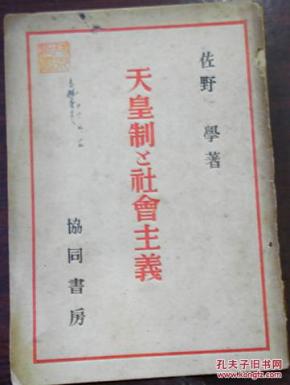 佐野學著
天皇制と社會主義
協同書房
孔夫子旧书网